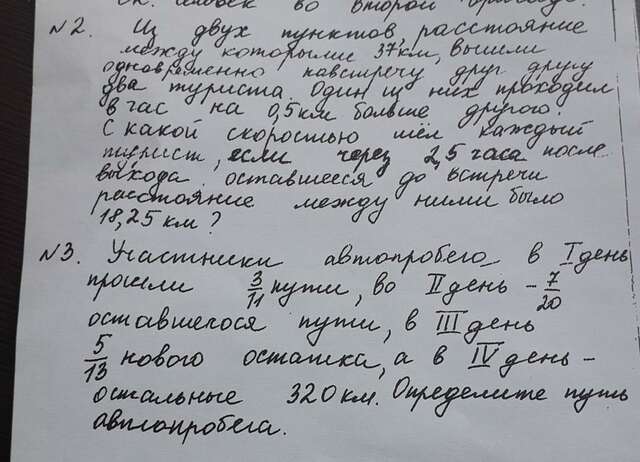 во второй
№2. Из двух пунктов, расстояние
между которыми 37 км, вышли
одновременно навстречу друг другу
два туриста. Один из них проходил
в час на 0,5 км больше другого.
С какой скоростью шёл каждый
турист, если через 2,5 часа после
выхода оставшееся до встречи
расстояние между ними было
18,25 км?
№3. Участники автопробега в I день
прошли 3/11 пути, во II день - 7/20
оставшегося пути, в III день
5/13 нового остатка, а в IV день -
остальные 320 км. Определите путь
автопробега.